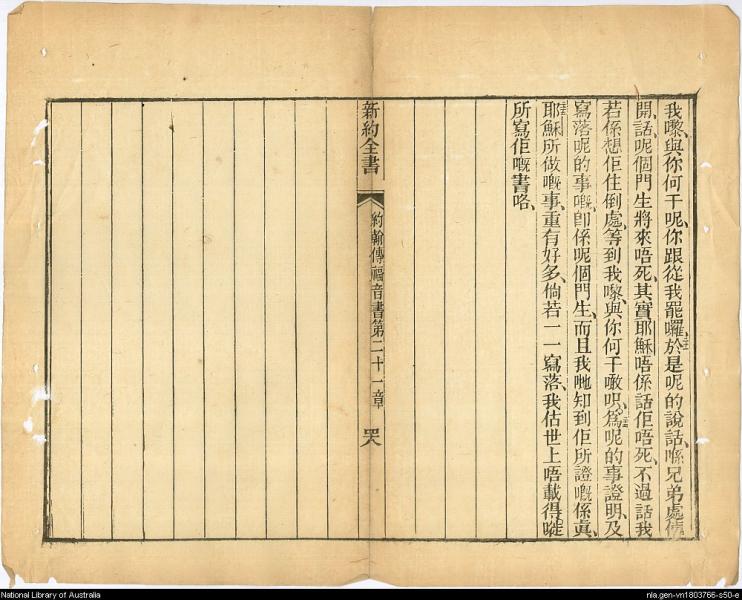 我嚟、與你何干呢、你跟從我罷囉、於是呢的說話、喺兄弟處便
開話、呢個門生將來唔死、其實耶穌唔係話佢唔死、不過話我
若係想佢住倒處、等到我嚟、與你何干啫呮、爲呢的事證明、及
寫落呢的事嘅、卽係呢個門生、而且我哋知到佢所證嘅係眞、
耶穌所做嘅事、重有好多、倘若一一寫落、我估世上唔載得嗻
所寫佢嘅書咯、
新約全書
約翰傳福音書第二十一章
National Library of Australia
nla.gen-vn1803766-s50-e